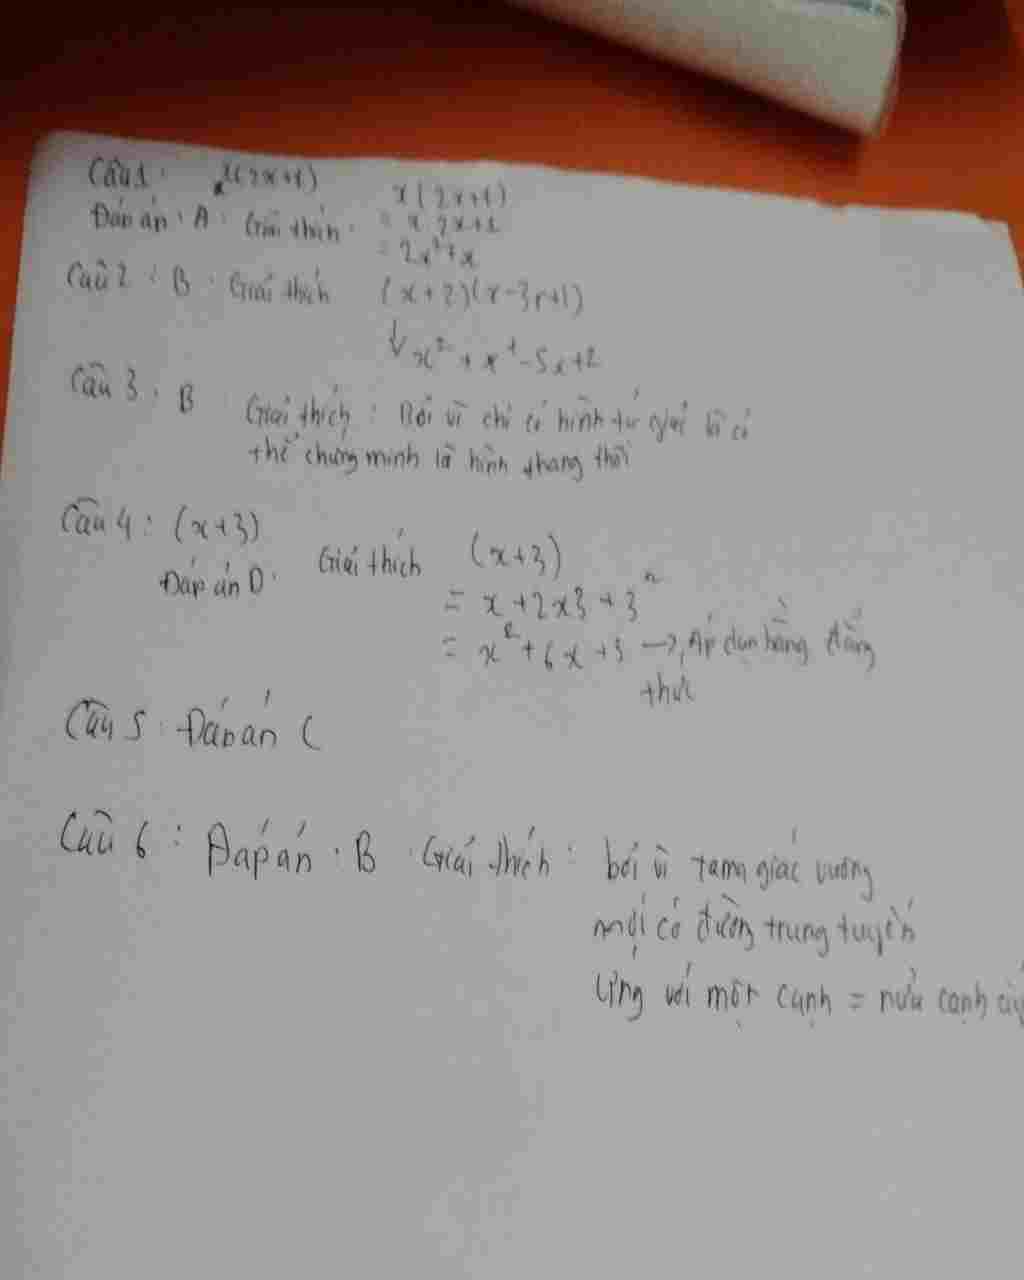 Câu 1: x(2x+1) x(2x+1)
Đáp án: A. Giải thích: = x 2x+1
= 2x²+x
Câu 2: B. Giải thích (x+2)(x-3x+1)
↓ x² + x - 5x+2
Câu 3. B
Giải thích: Bởi vì chỉ có hình tứ giác là có
thể chứng minh là hình thang thôi
Câu 4: (x+3)
Đáp án D. Giải thích (x+3)
= x+2x3+3²
= x²+6x+3 → Áp dụn hằng đẳng
thức
Câu 5: Đáp án C
Câu 6: Đáp án. B Giải thích: bởi vì tam giác vuông
mới có đường trung tuyến
Ứng với một cạnh = nửa cạnh